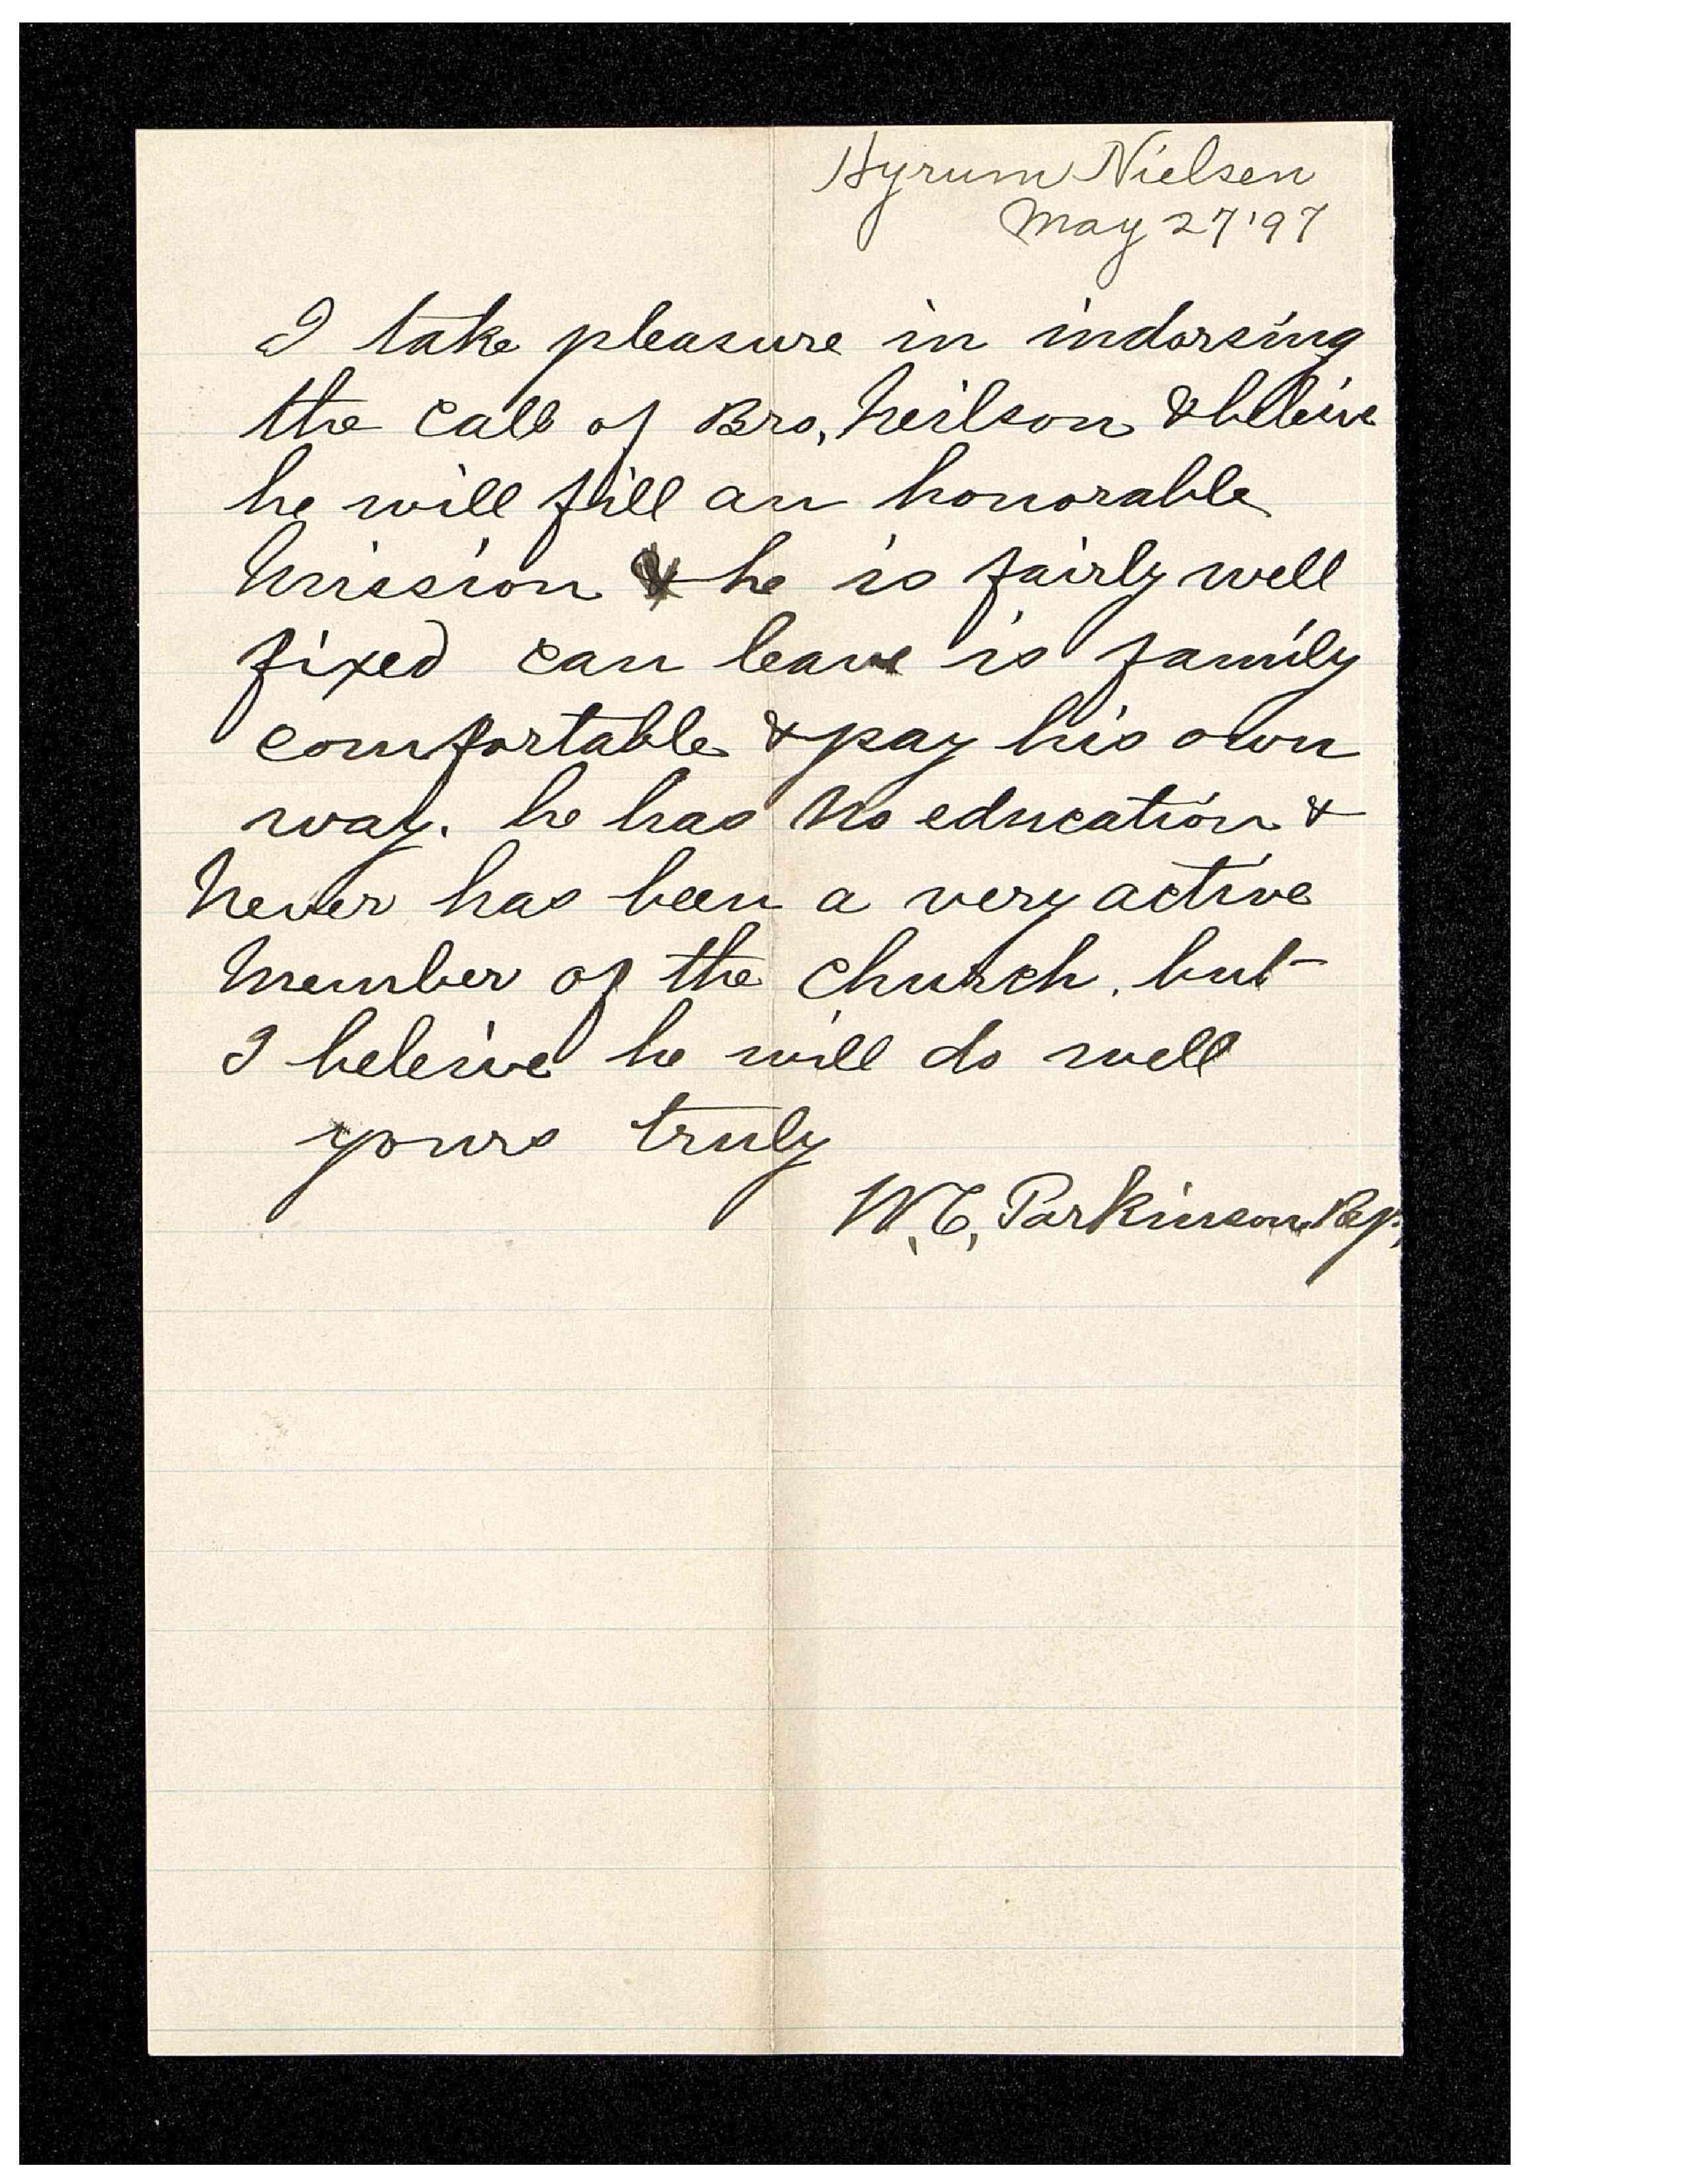 Hyrum Nielsen
May 27 '97
I take pleasure in indorsing
the call of Bro, Neilson & beleive
he will fill an honorable
Mission & he is fairly well
fixed can leave is family
comfortable & pay his own
way. he has No education &
Never has been a very active
Member of the church. but
I beleive he will do well
yours truly
W.C, Parkinson Bp.